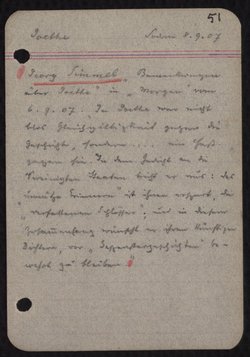 51
Goethe Sonn 8.9.07
Georg Simmel „Bemerkungen
über Goethe" in „Morgen" vom
6.9.07. In Goethe war nicht
blos Gleichgiltigkeit gegen die
Geschichte, sondern ein Haß
gegen sie. In dem Gedicht an die
Vereinigten Staaten bricht er aus: das
unnütze Erinnern" ist ihnen erspart, die
„verfallenen Schlösser"; und in diesem
Zusammenhang wünscht er ihren künftigen
Dichtern, vor „Gespenstergeschichten" be-
wahrt zu bleiben